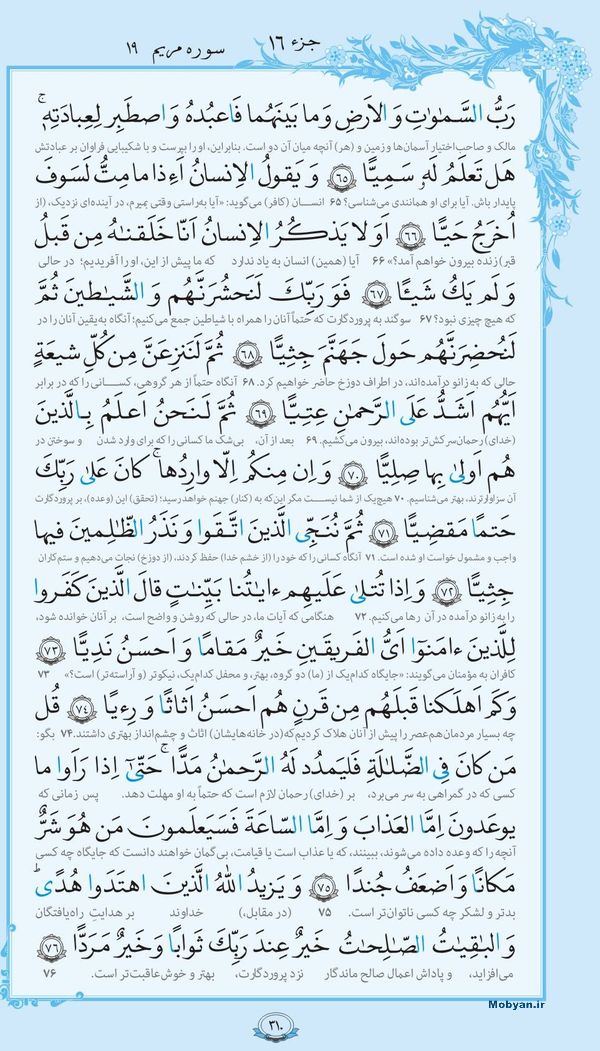 جزء ۱۶ سوره مریم ۱۹
رَبُّ السَّمٰوٰتِ وَ الاَرضِ وَ ما بَینَهُما فَاعبُدهُ وَ اصطَبِر لِعِبادَتِهٖۚ
مالک و صاحب‌اختیار آسمان‌ها و زمین و (هر) آنچه میان آن دو است. بنابراین، او را بپرست و با شکیبایی فراوان بر عبادتش
هَل تَعلَمُ لَهٗ سَمِیًّا ۶۵ وَ یَقولُ الاِنسانُ اَءِذا ما مِتُّ لَسَوفَ
پایدار باش. آیا برای او همانندی می‌شناسی؟ ۶۵ انسان (کافر) می‌گوید: «آیا به‌راستی وقتی بمیرم، در آینده‌ای نزدیک، از
اُخرَجُ حَیًّا ۶۶ اَوَلا یَذکُرُ الاِنسانُ اَنّا خَلَقنٰهُ مِن قَبلُ
قبر) زنده بیرون خواهم آمد؟» ۶۶ آیا (همین) انسان به یاد ندارد که ما پیش از این، او را آفریدیم؛ در حالی
وَ لَم یَكُ شَیـًٔا ۶۷ فَوَ رَبِّكَ لَنَحشُرَنَّهُم وَ الشَّیاطینَ ثُمَّ
که هیچ چیزی نبود؟ ۶۷ سوگند به پروردگارت که حتماً آنان را همراه با شیاطین جمع می‌کنیم؛ آنگاه به‌یقین آنان را در
لَنُحضِرَنَّهُم حَولَ جَهَنَّمَ جِثِیًّا ۶۸ ثُمَّ لَنَنزِعَنَّ مِن كُلِّ شیعَةٍ
حالی که به زانو درآمده‌اند، در اطراف دوزخ حاضر خواهیم کرد. ۶۸ آنگاه حتماً از هر گروهی، کسانی را که در برابر
اَیُّهُم اَشَدُّ عَلَی الرَّحمٰنِ عِتِیًّا ۶۹ ثُمَّ لَنَحنُ اَعلَمُ بِالَّذینَ
(خدای) رحمان سرکش‌تر بوده‌اند، بیرون می‌کشیم. ۶۹ بعد از آن، بی‌شک ما کسانی را که برای وارد شدن و سوختن در
هُم اَولیٰ بِها صِلِیًّا ۷۰ وَ اِن مِنكُم اِلّا وارِدُهاۚ كانَ عَلیٰ رَبِّكَ
آن سزاوارترند، بهتر می‌شناسیم. ۷۰ هیچ‌یک از شما نیست مگر این‌که به (کنار) جهنم خواهد رسید؛ (تحقق) این (وعده)، بر پروردگارت
حَتمًا مَقضِیًّا ۷۱ ثُمَّ نُنَجِّی الَّذینَ اتَّقَوا وَ نَذَرُ الظّٰلِمینَ فیها
واجب و مشمول خواست او شده است. ۷۱ آنگاه کسانی را که خود را (از خشم خدا) حفظ کردند، (از دوزخ) نجات می‌دهیم و ستم‌کاران
جِثِیًّا ۷۲ وَ اِذا تُتلیٰ عَلَیهِم ءایٰتُنا بَیِّنٰتٍ قالَ الَّذینَ كَفَروا
را به زانو درآمده در آن رها می‌کنیم. ۷۲ هنگامی که آیات ما، در حالی که روشن و واضح است، بر آنان خوانده شود،
لِلَّذینَ ءامَنوٓا اَیُّ الفَریقَینِ خَیرٌ مَقامًا وَ اَحسَنُ نَدِیًّا ۷۳
کافران به مؤمنان می‌گویند: «جایگاه کدام‌یک از (ما) دو گروه، بهتر، و محفل کدام‌یک، نیکوتر (و آراسته‌تر) است؟» ۷۳
وَ كَم اَهلَكنا قَبلَهُم مِن قَرنٍ هُم اَحسَنُ اَثاثًا وَ رِءیًا ۷۴ قُل
چه بسیار مردمان هم‌عصر را پیش از آنان هلاک کردیم که (در خانه‌هایشان) اثاث و چشم‌انداز بهتری داشتند. ۷۴ بگو:
مَن كانَ فِی الضَّلٰلَةِ فَلیَمدُد لَهُ الرَّحمٰنُ مَدًّاۚ حَتّیٰٓ اِذا رَاَوا ما
کسی که در گمراهی به سر می‌برد، بر (خدای) رحمان لازم است که حتماً به او مهلت دهد. پس زمانی که
یوعَدونَ اِمَّا العَذابَ وَ اِمَّا السّاعَةَ فَسَیَعلَمونَ مَن هُوَ شَرٌّ
آنچه را که وعده داده می‌شوند، ببینند، که یا عذاب است یا قیامت، بی‌گمان خواهند دانست که جایگاه چه کسی
مَكانًا وَ اَضعَفُ جُندًا ۷۵ وَ یَزیدُ اللّٰهُ الَّذینَ اهتَدَوا هُدًیۗ
بدتر و لشکر چه کسی ناتوان‌تر است. ۷۵ (در مقابل،) خداوند بر هدایتِ راه‌یافتگان
وَ البٰقِیٰتُ الصّٰلِحٰتُ خَیرٌ عِندَ رَبِّكَ ثَوابًا وَ خَیرٌ مَرَدًّا ۷۶
می‌افزاید، و پاداش اعمال صالح ماندگار نزد پروردگارت، بهتر و خوش‌عاقبت‌تر است. ۷۶
Mobyan.ir
۳۱۰